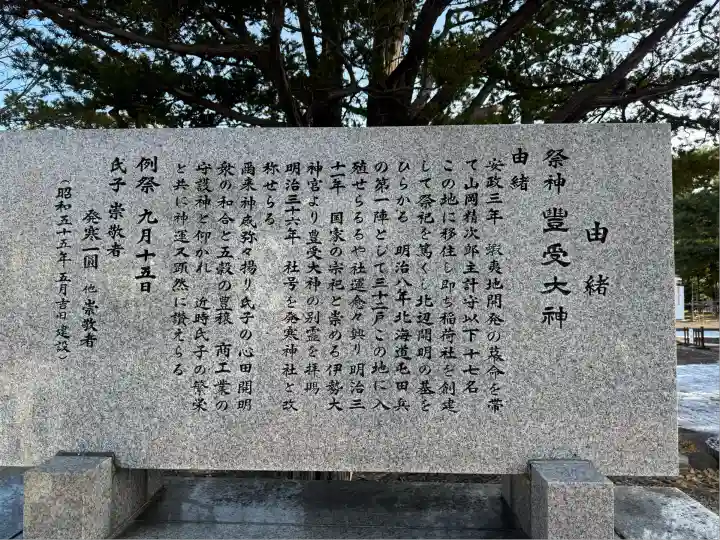 由緒
祭神 豐受大神
由緒
安政三年 蝦夷地開発の幕命を帯
て山岡精次郎主計守以下十七名
この地に移住し即ち稲荷社を創建
して祭祀を篤くし北辺開明の基を
ひらかる 明治八年北海道屯田兵
の第一陣として三十二戸この地に入
殖せらるるや社運愈々興り明治三
十一年 国家の宗祀と崇める伊勢大
神宮より豊受大神の別霊を拝賜
明治三十六年 社号を発寒神社と改
称せらる
爾来神威弥々揚り氏子の心田開明
衆の和合と五穀の豊穣 商工業の
守護神と仰かれ 近時氏子の繁栄
と共に神運又頭然に讃えらる
例祭 九月十五日
氏子 崇敬者
発寒一圓 他 崇敬者
(昭和五十五年五月吉日建設)